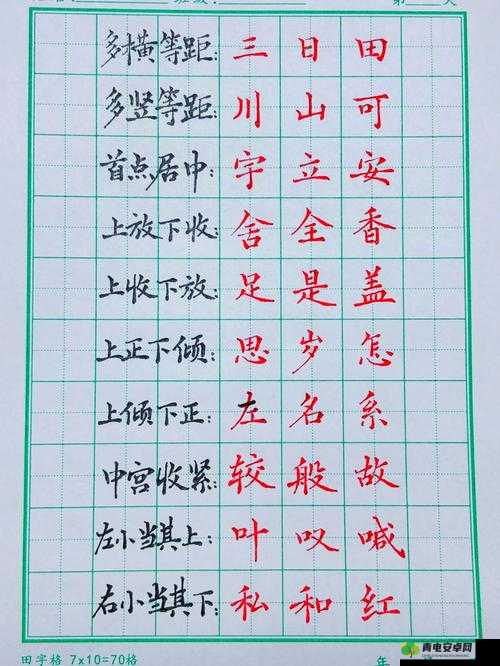 第 天
多横等距: 三 日 田
多竖等距: 川 山 可
首点居中: 宇 立 安
上放下收: 舍 全 香
上收下放: 足 是 盖
上正下倾: 思 岁 怎
上倾下正: 左 名 系
中宫收紧: 较 般 故
左小当其上: 叶 叹 喊
右小当其下: 私 和 红
田字格 7x10=70格 年
青电安卓网